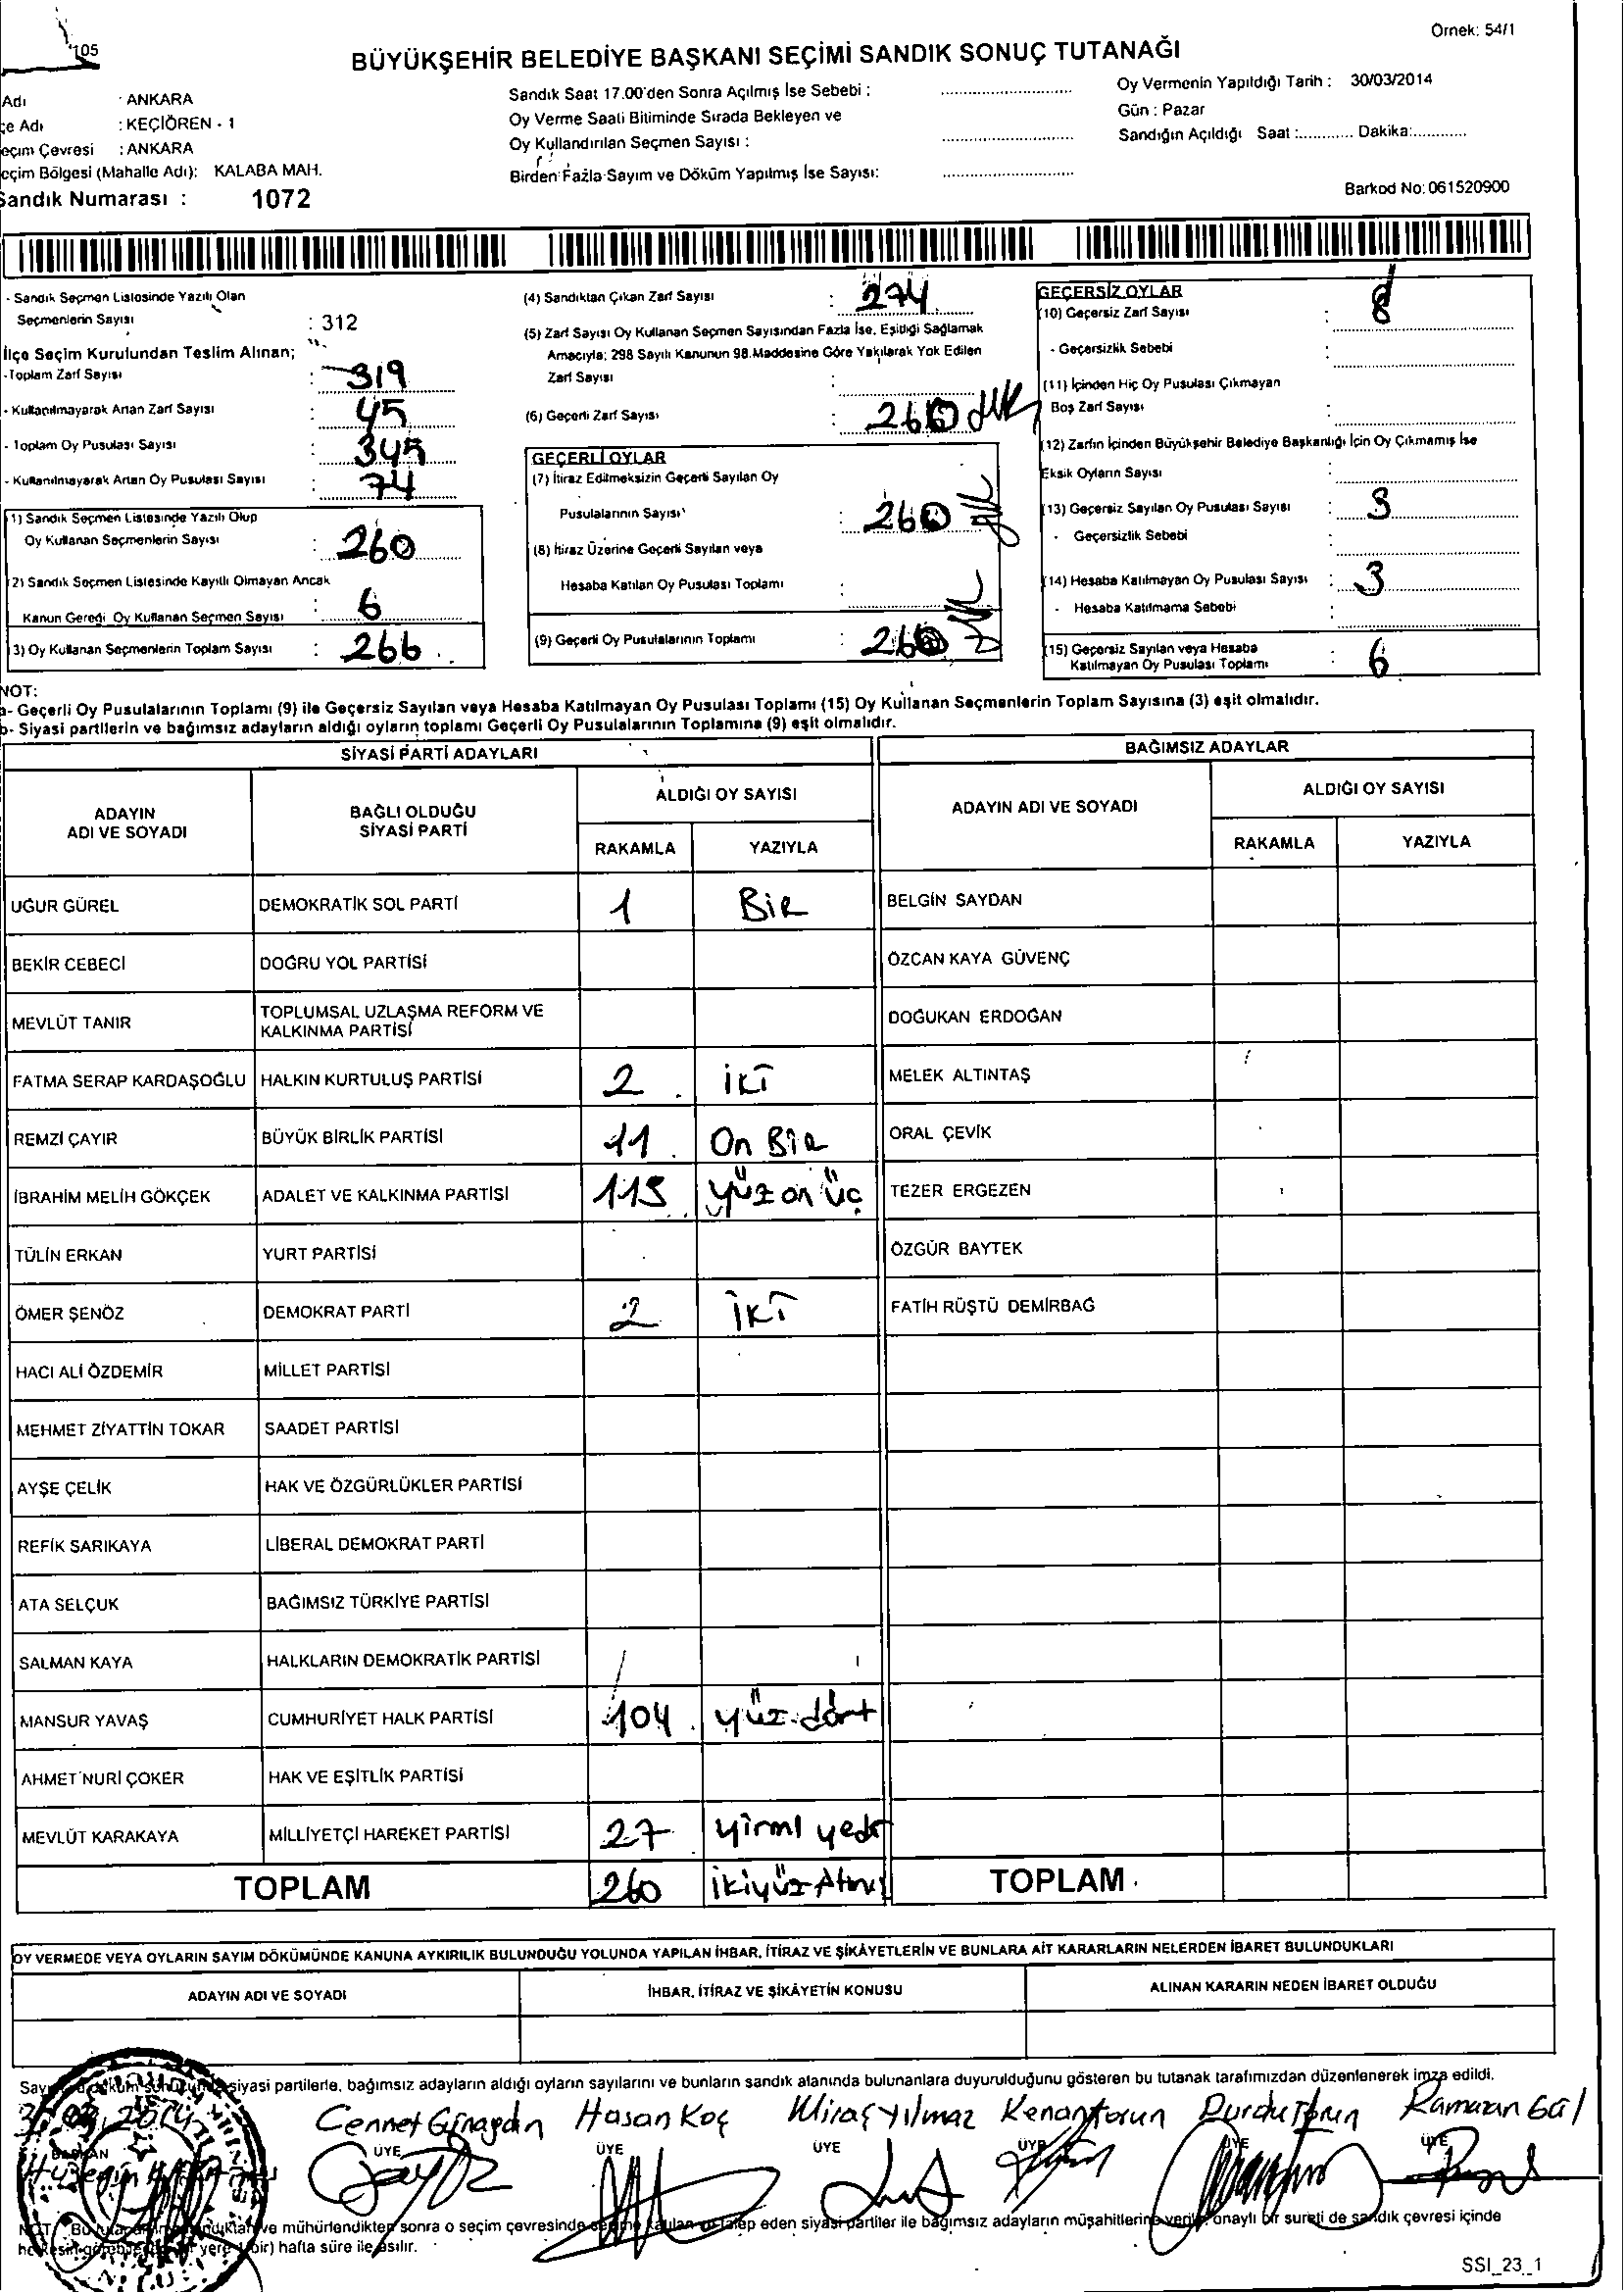 105
Örnek: 54/1
BÜYÜKŞEHİR BELEDİYE BAŞKANI SEÇİMİ SANDIK SONUÇ TUTANAĞI
Adı : ANKARA
çe Adı : KEÇİÖREN - 1
eçim Çevresi : ANKARA
eçim Bölgesi (Mahalle Adı): KALABA MAH.
Sandık Numarası : 1072
Sandık Saat 17.00'den Sonra Açılmış İse Sebebi :
Oy Verme Saati Bitiminde Sırada Bekleyen ve
Oy Kullandırılan Seçmen Sayısı :
Birden Fazla Sayım ve Döküm Yapılmış İse Sayısı:
Oy Vermenin Yapıldığı Tarih : 30/03/2014
Gün : Pazar
Sandığın Açıldığı Saat :........... Dakika:...........
Barkod No: 061520900
- Sandık Seçmen Listesinde Yazılı Olan
Seçmenlerin Sayısı : 312
İlçe Seçim Kurulundan Teslim Alınan;
-Toplam Zarf Sayısı : 319
- Kullanılmayarak Artan Zarf Sayısı : 45
- Toplam Oy Pusulası Sayısı : 345
- Kullanılmayarak Artan Oy Pusulası Sayısı : 74
1) Sandık Seçmen Listesinde Yazılı Olup
Oy Kullanan Seçmenlerin Sayısı : 260
2) Sandık Seçmen Listesinde Kayıtlı Olmayan Ancak
Kanun Gereği Oy Kullanan Seçmen Sayısı : 6
3) Oy Kullanan Seçmenlerin Toplam Sayısı : 266
(4) Sandıktan Çıkan Zarf Sayısı : 274
(5) Zarf Sayısı Oy Kullanan Seçmen Sayısından Fazla İse, Eşitliği Sağlamak
Amacıyla; 298 Sayılı Kanunun 98.Maddesine Göre Yakılarak Yok Edilen
Zarf Sayısı :
(6) Geçerli Zarf Sayısı : 266
GEÇERLİ OYLAR
(7) İtiraz Edilmeksizin Geçerli Sayılan Oy
Pusulalarının Sayısı : 260
(8) İtiraz Üzerine Geçerli Sayılan veya
Hesaba Katılan Oy Pusulası Toplamı :
(9) Geçerli Oy Pusulalarının Toplamı : 260
GEÇERSİZ OYLAR
(10) Geçersiz Zarf Sayısı : 8
- Geçersizlik Sebebi :
(11) İçinden Hiç Oy Pusulası Çıkmayan
Boş Zarf Sayısı :
(12) Zarfın İçinden Büyükşehir Belediye Başkanlığı İçin Oy Çıkmamış İse
Eksik Oyların Sayısı :
(13) Geçersiz Sayılan Oy Pusulası Sayısı : 3
- Geçersizlik Sebebi :
(14) Hesaba Katılmayan Oy Pusulası Sayısı : 3
- Hesaba Katılmama Sebebi :
(15) Geçersiz Sayılan veya Hesaba
Katılmayan Oy Pusulası Toplamı : 6
NOT:
a- Geçerli Oy Pusulalarının Toplamı (9) ile Geçersiz Sayılan veya Hesaba Katılmayan Oy Pusulası Toplamı (15) Oy Kullanan Seçmenlerin Toplam Sayısına (3) eşit olmalıdır.
b- Siyasi partilerin ve bağımsız adayların aldığı oyların toplamı Geçerli Oy Pusulalarının Toplamına (9) eşit olmalıdır.
SİYASİ PARTİ ADAYLARI BAĞIMSIZ ADAYLAR
ADAYIN ADI VE SOYADI BAĞLI OLDUĞU SİYASİ PARTİ ALDIĞI OY SAYISI ADAYIN ADI VE SOYADI ALDIĞI OY SAYISI
RAKAMLA YAZIYLA RAKAMLA YAZIYLA
UĞUR GÜREL DEMOKRATİK SOL PARTİ 1 Bir BELGİN SAYDAN
BEKİR CEBECİ DOĞRU YOL PARTİSİ ÖZCAN KAYA GÜVENÇ
MEVLÜT TANIR TOPLUMSAL UZLAŞMA REFORM VE KALKINMA PARTİSİ DOĞUKAN ERDOĞAN
FATMA SERAP KARDAŞOĞLU HALKIN KURTULUŞ PARTİSİ 2 iki MELEK ALTINTAŞ
REMZİ ÇAYIR BÜYÜK BİRLİK PARTİSİ 11 On Bir ORAL ÇEVİK
İBRAHİM MELİH GÖKÇEK ADALET VE KALKINMA PARTİSİ 113 yüz on üç TEZER ERGEZEN
TÜLİN ERKAN YURT PARTİSİ ÖZGÜR BAYTEK
ÖMER ŞENÖZ DEMOKRAT PARTİ 2 iki FATİH RÜŞTÜ DEMİRBAĞ
HACI ALİ ÖZDEMİR MİLLET PARTİSİ
MEHMET ZİYATTİN TOKAR SAADET PARTİSİ
AYŞE ÇELİK HAK VE ÖZGÜRLÜKLER PARTİSİ
REFİK SARIKAYA LİBERAL DEMOKRAT PARTİ
ATA SELÇUK BAĞIMSIZ TÜRKİYE PARTİSİ
SALMAN KAYA HALKLARIN DEMOKRATİK PARTİSİ
MANSUR YAVAŞ CUMHURİYET HALK PARTİSİ 104 yüz dört
AHMET NURİ ÇOKER HAK VE EŞİTLİK PARTİSİ
MEVLÜT KARAKAYA MİLLİYETÇİ HAREKET PARTİSİ 27 yirmi yedi
TOPLAM 260 ikiyüz Atmış TOPLAM
OY VERMEDE VEYA OYLARIN SAYIM DÖKÜMÜNDE KANUNA AYKIRILIK BULUNDUĞU YOLUNDA YAPILAN İHBAR, İTİRAZ VE ŞİKÂYETLERİN VE BUNLARA AİT KARARLARIN NELERDEN İBARET BULUNDUKLARI
ADAYIN ADI VE SOYADI İHBAR, İTİRAZ VE ŞİKÂYETİN KONUSU ALINAN KARARIN NEDEN İBARET OLDUĞU
siyasi partilerle, bağımsız adayların aldığı oyların sayılarını ve bunların sandık alanında bulunanlara duyurulduğunu gösteren bu tutanak tarafımızdan düzenlenerek imza edildi.
Hasan Koç Miraç Yılmaz Kenan Torun Durdu Torun Ramazan Gül
BAŞKAN ÜYE ÜYE ÜYE ÜYE ÜYE ÜYE
ve mühürlendikten sonra o seçim çevresinde seçime katılan ve talep eden siyasi partiler ile bağımsız adayların müşahitlerine verilir. onaylı bir sureti de sandık çevresi içinde
yere (bir) hafta süre ile asılır.
SSI_23_1